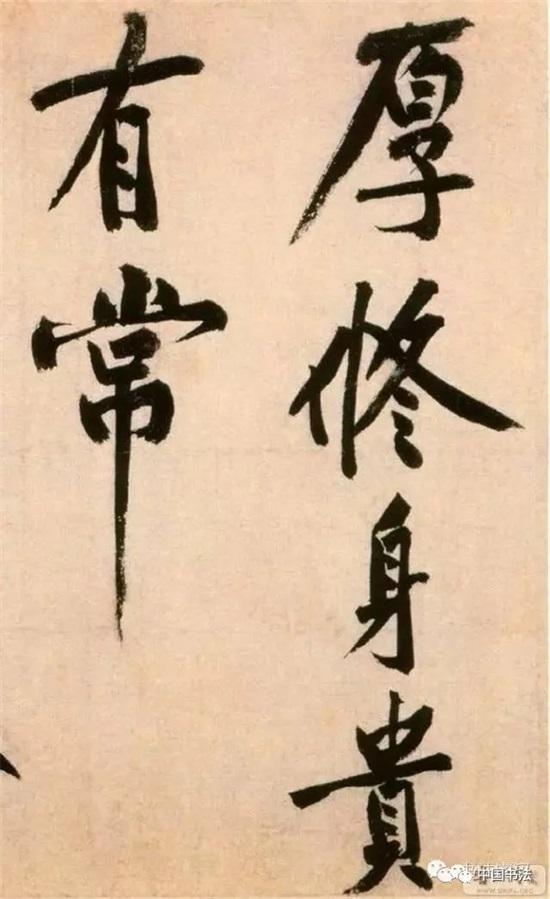 厚修身貴
有常
中国书法